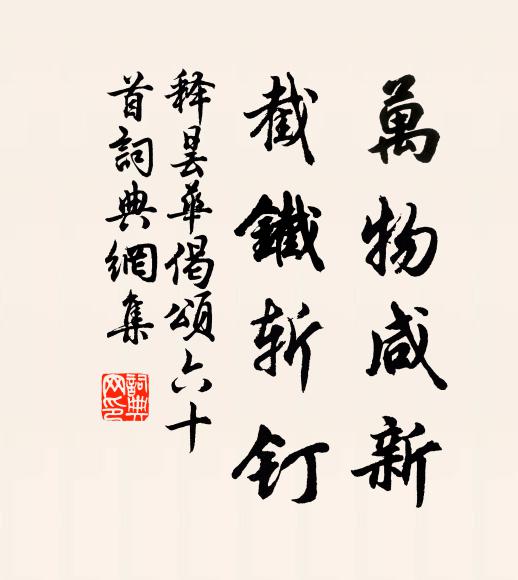 萬物咸新
截鐵斬釘
釋曇華偈頌六十
首詞典網集
詞典網印